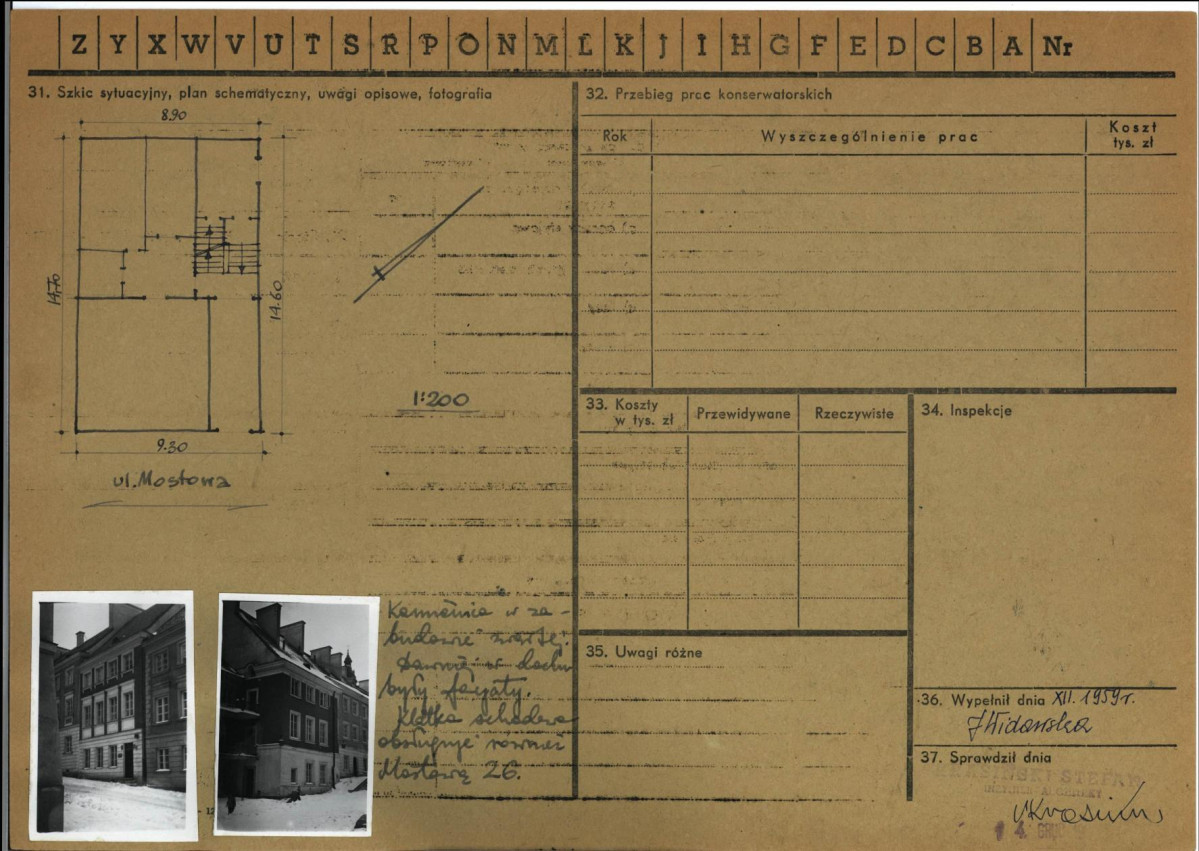 Z Y X W V U T S R P O N M Ł K J I H G F E D C B A Nr
31. Szkic sytuacyjny, plan schematyczny, uwagi opisowe, fotografia
8.90
14.70
14.60
1:200
9.30
ul. Mostowa
Kamienica w za-
budowie zwartej.
Dawniej w dachu
były facjaty.
Klatka schodowa
obsługuje również
Mostową 26.
32. Przebieg prac konserwatorskich
Rok
Wyszczególnienie prac
Koszt
tys. zł
33. Koszty
w tys. zł
Przewidywane
Rzeczywiste
34. Inspekcje
35. Uwagi różne
36. Wypełnił dnia XII. 1959 r.
JWidawska
37. Sprawdził dnia
KRASIŃSKI STEFAN